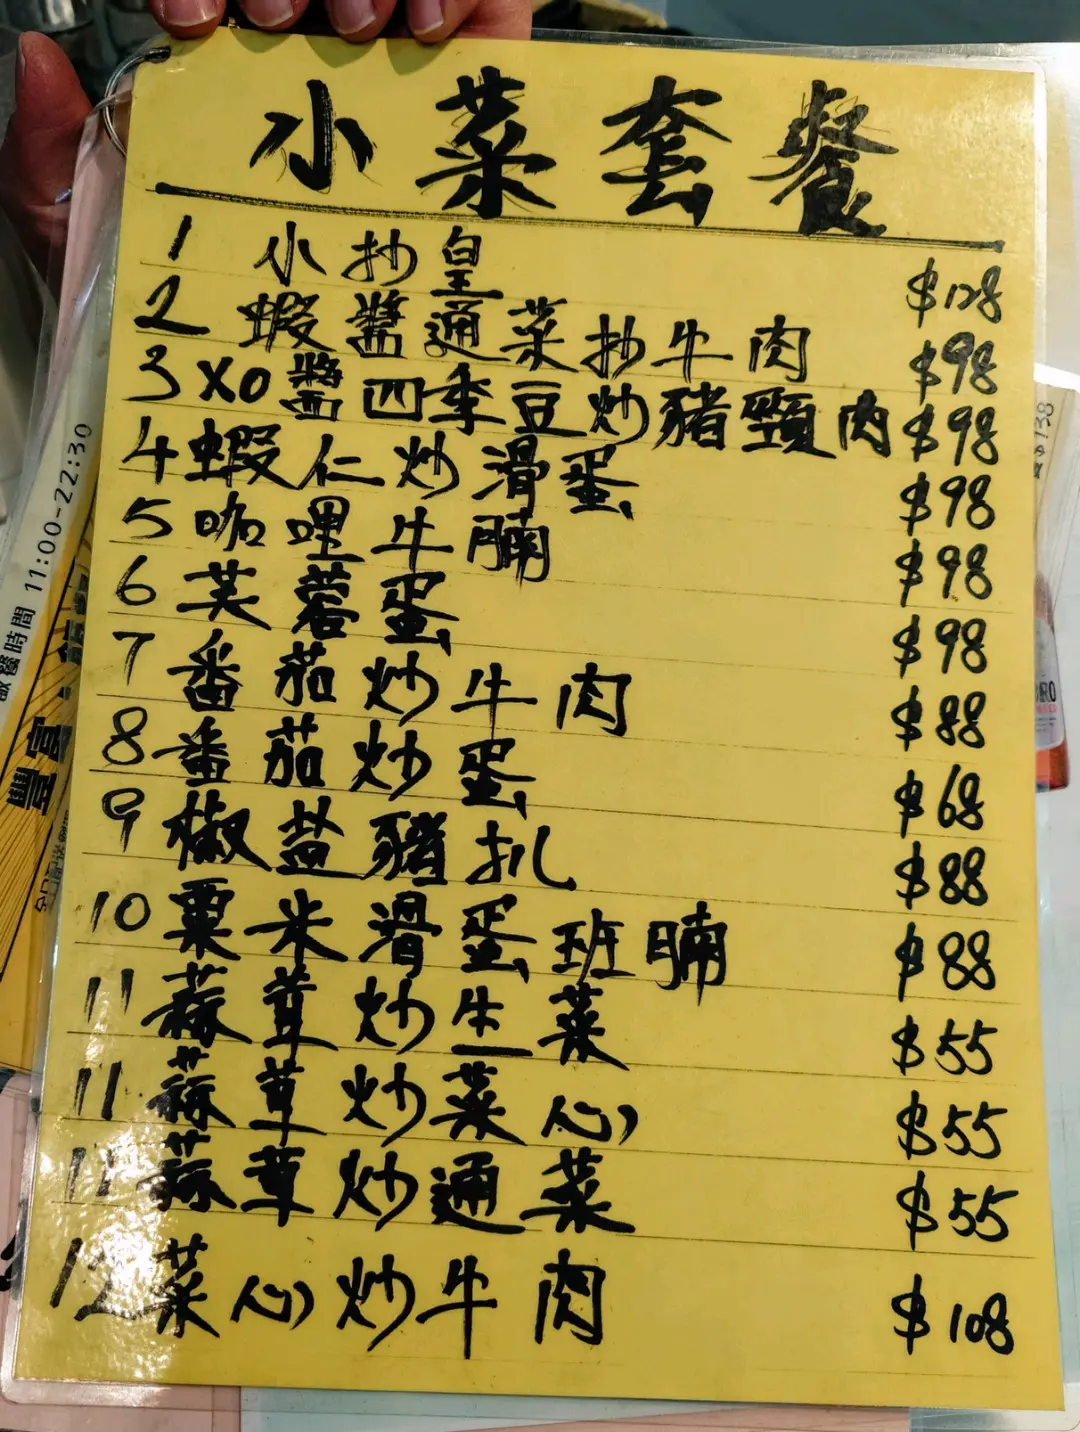 小菜套餐
1 小抄皇 $128
2 蝦醬通菜抄牛肉 $98
3 XO醬四季豆炒豬頸肉 $98
4 蝦仁炒滑蛋 $98
5 咖哩牛腩 $98
6 芙蓉蛋 $98
7 番茄炒牛肉 $88
8 番茄炒蛋 $68
9 椒盐豬扒 $88
10 粟米滑蛋班腩 $88
11 蒜茸炒生菜 $55
11 蒜茸炒菜心 $55
11 蒜茸炒通菜 $55
12 菜心炒牛肉 $108
餐時間 11:00-22:30
豐富
$138